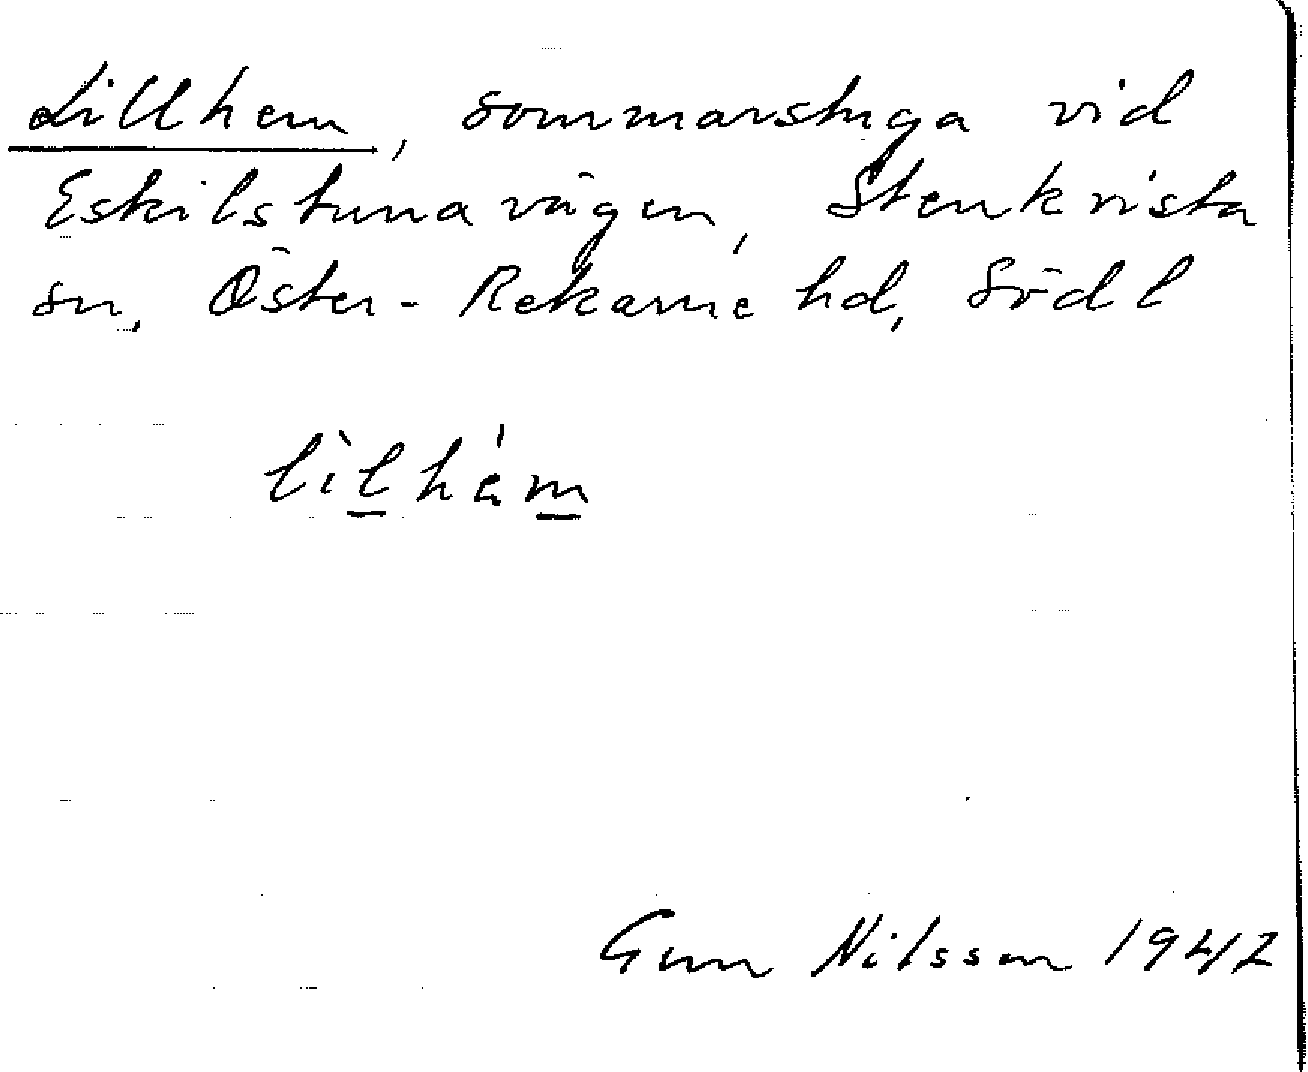 Lillhem, sommarstuga vid
Eskilstunavägen, Stenkvista
sn, Öster-Rekarne hd, Södl
lìlhém
Gun Nilsson 1942